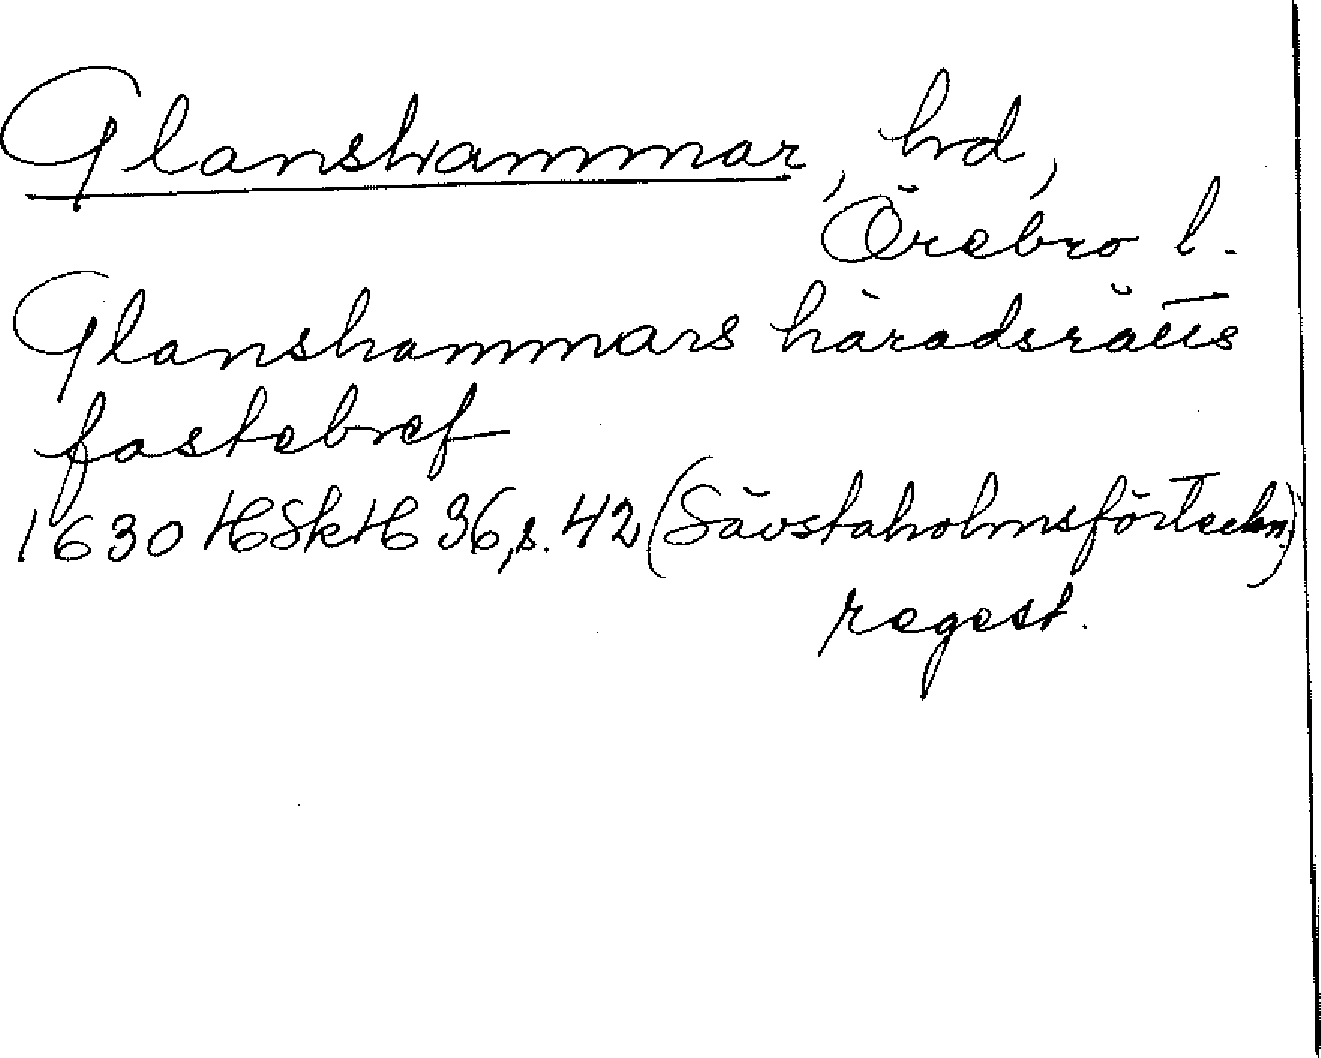 Glanshammar, hd,
Örebro l.
Glanshammars häradsrätts
fastebref
1630 HSkH 36, s. 42 (Sävstaholmsförteckn.)
regest.